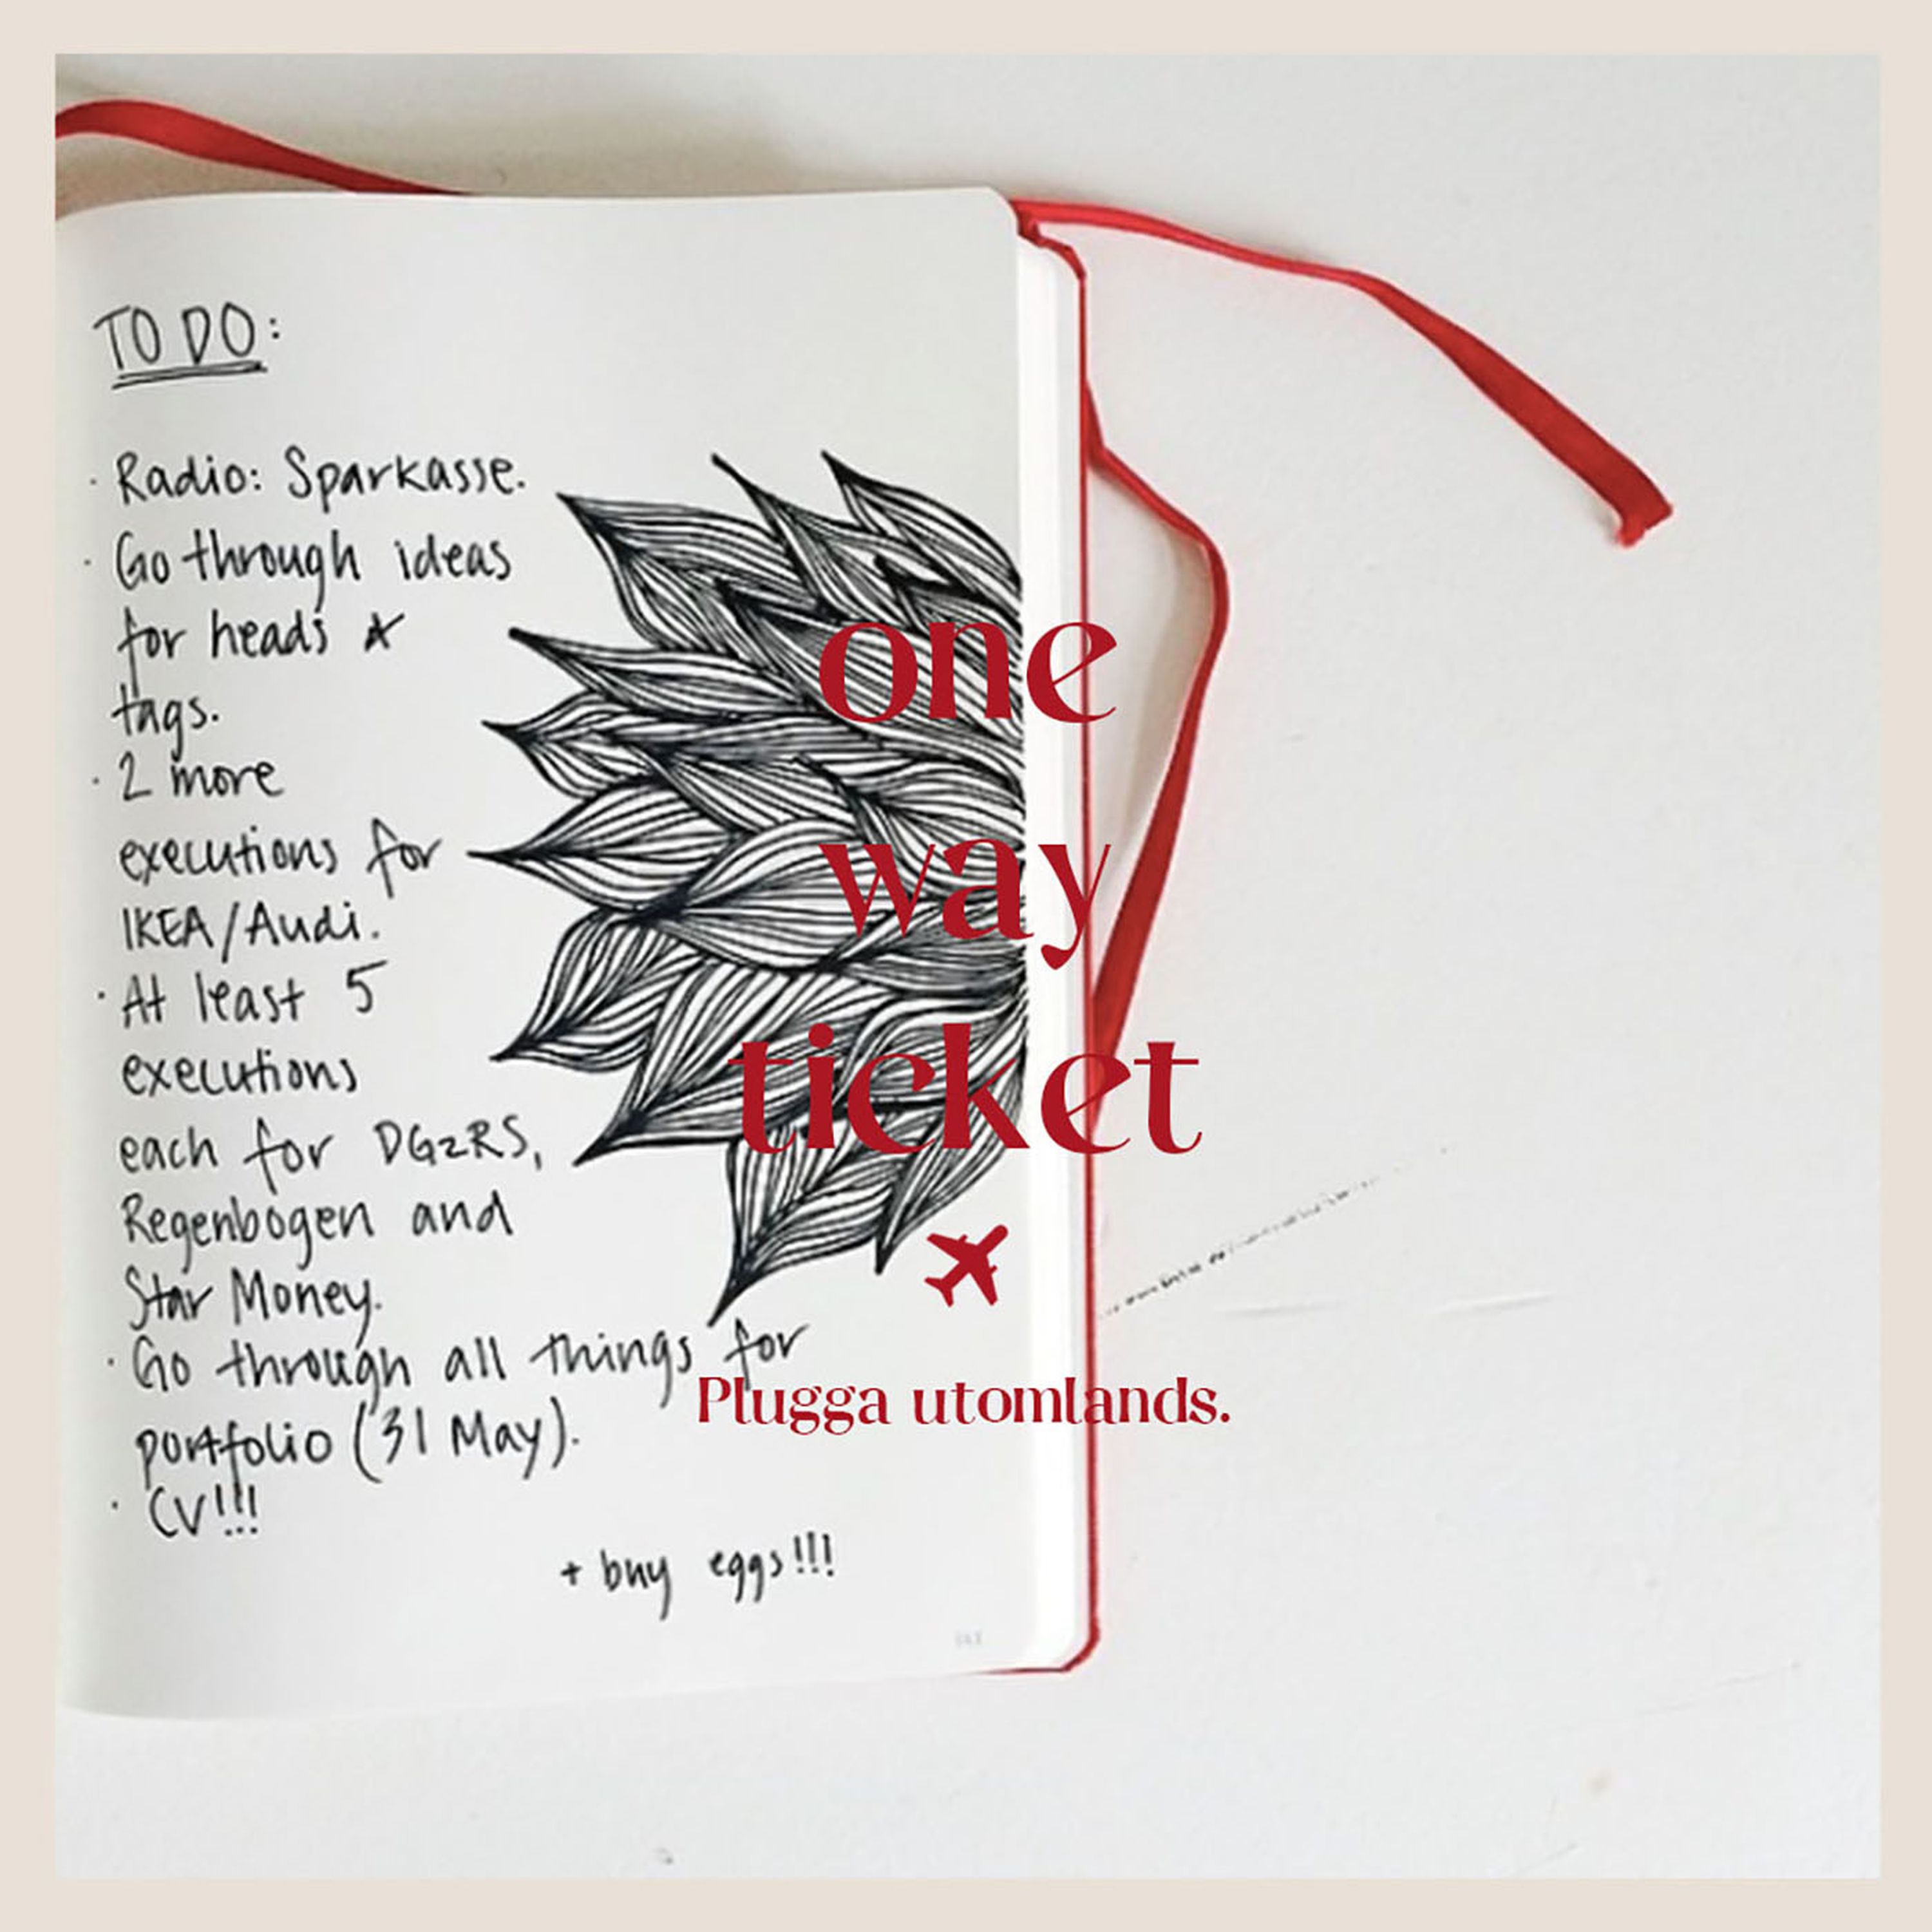 TO DO:
· Radio: Sparkasse.
· Go through ideas
for heads &
tags.
· 2 more
executions for
IKEA/Audi.
· At least 5
executions
each for DGzRS,
Regenbogen and
Star Money.
· Go through all things for
portfolio (31 May).
· CV!!!
+ buy eggs!!!
one
way
ticket
Plugga utomlands.